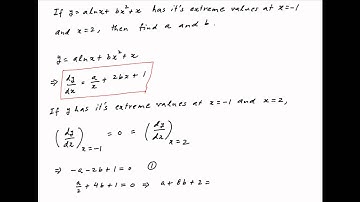 If y = alnx + bx² + x has it's extreme values at x=-1
and x=2, then find a and b.
y = alnx + bx² + x
⇒ dy/dx = a/x + 2bx + 1
If y has it's extreme values at x=-1 and x=2,
(dy/dx)x=-1 = 0 = (dy/dx)x=2
⇒ -a-2b+1=0 ①
a/2 + 4b+1=0 ⇒ a+8b+2=